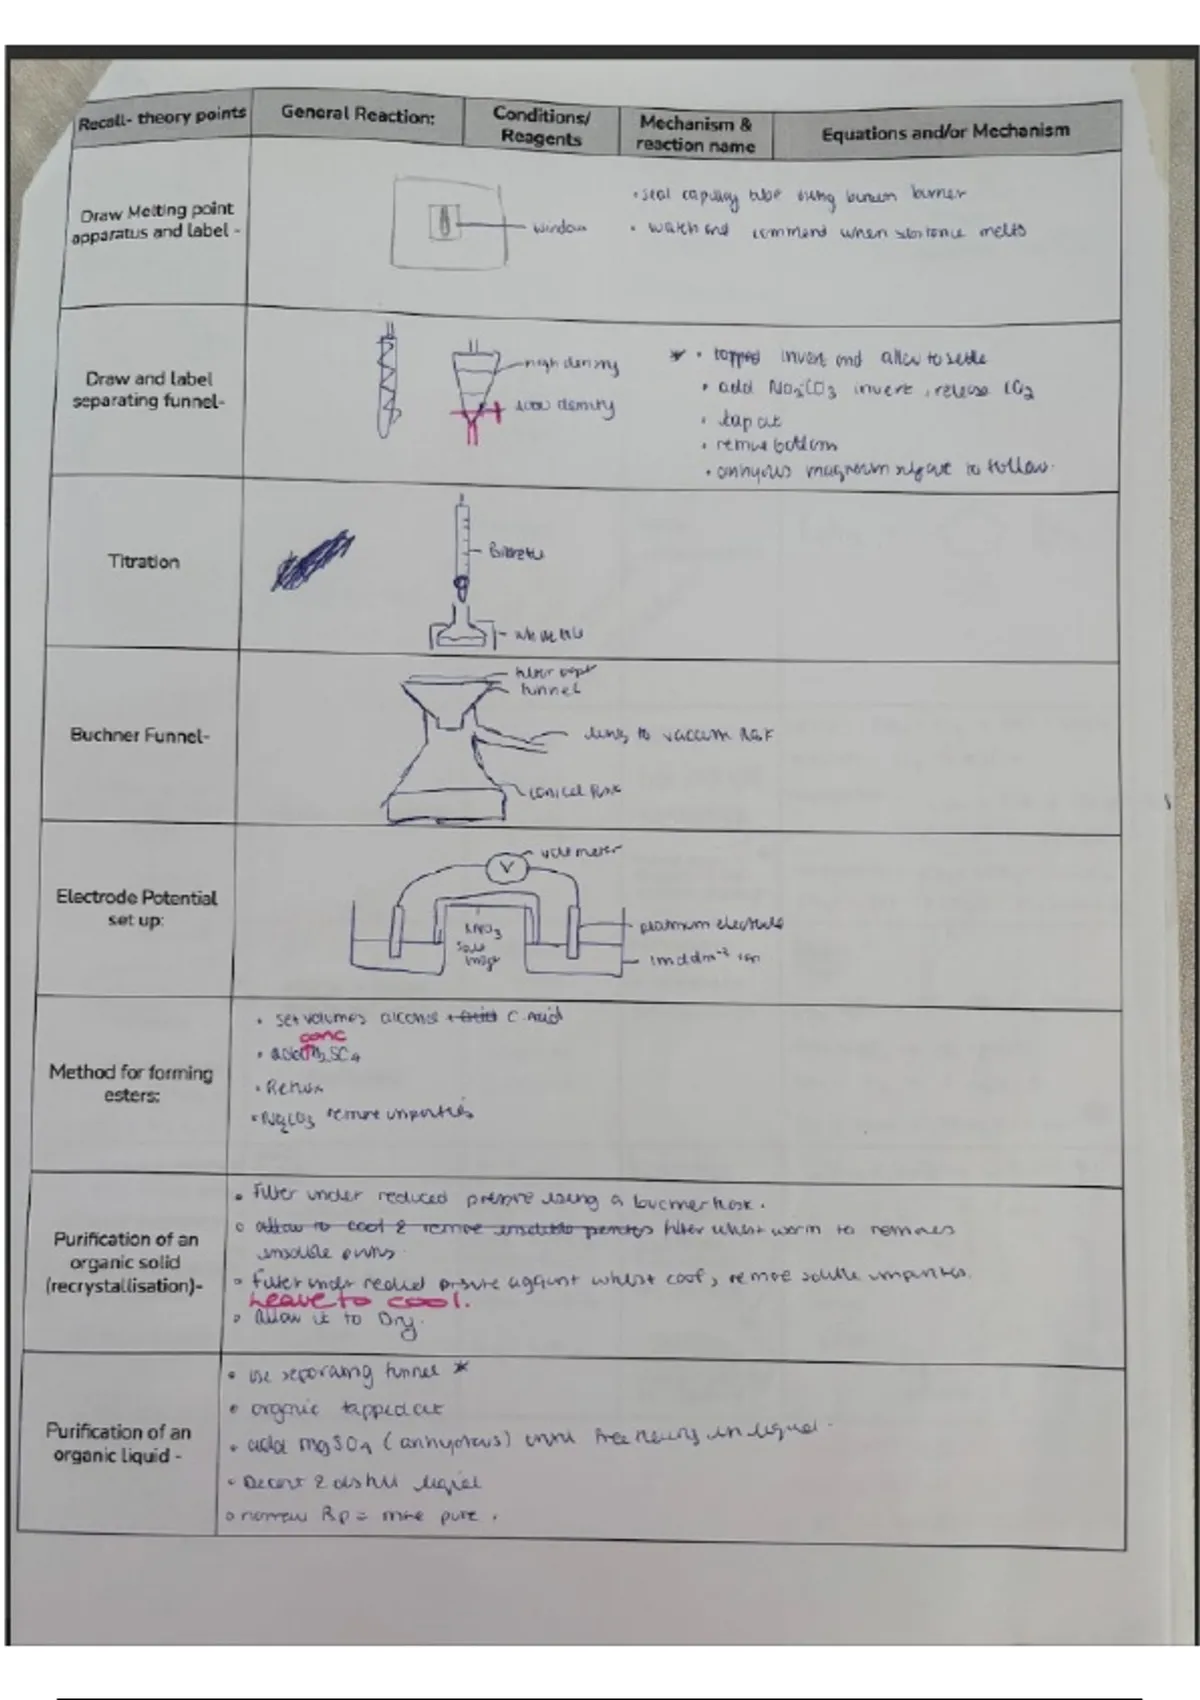 Recall- theory points
General Reaction:
Conditions/
Reagents
Mechanism &
reaction name
Equations and/or Mechanism
Draw Melting point
apparatus and label -
window
• seal capillary tube using bunsen burner
• watch and commend when substance melts
Draw and label
separating funnel-
high density
low density
* • tapped invert and allow to settle
• add Na2CO3 invert, release CO2
• tap out
• remove bottom
• anhyous magnesium to follow.
Titration
Burette
white tile
Buchner Funnel-
filter paper
funnel
to vaccum
conical flask
Electrode Potential
set up:
voltmeter
V
KNO3
platinum electrode
Method for forming
esters:
• set volumes alcohol + acid C. Acid
conc
• add H2SO4
• Reflux
• Na2CO3 remove impurities
Purification of an
organic solid
(recrystallisation)-
• Filter under reduced pressure using a
• allow to cool & remove insoluble filter whilst warm to removes
insoluble
• filter under reduced whilst cool, remove soluble impurities.
Leave to cool.
• allow it to Dry.
Purification of an
organic liquid -
• use separating funnel *
• organic tapped out
• add mgSO4 (anhydrous) until in liquid
• Decant & distill liquid
• narrow Bp = more pure.